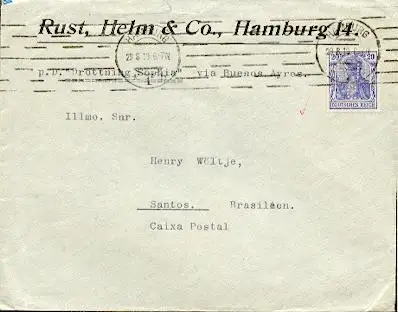 Rust, Helm & Co., Hamburg 14.
p.D."Drottning Sophia" via Buenos Ayres.
20 20
DEUTSCHES REICH
Illmo. Snr.
Henry Wöltje,
Santos. Brasilien.
Caixa Postal